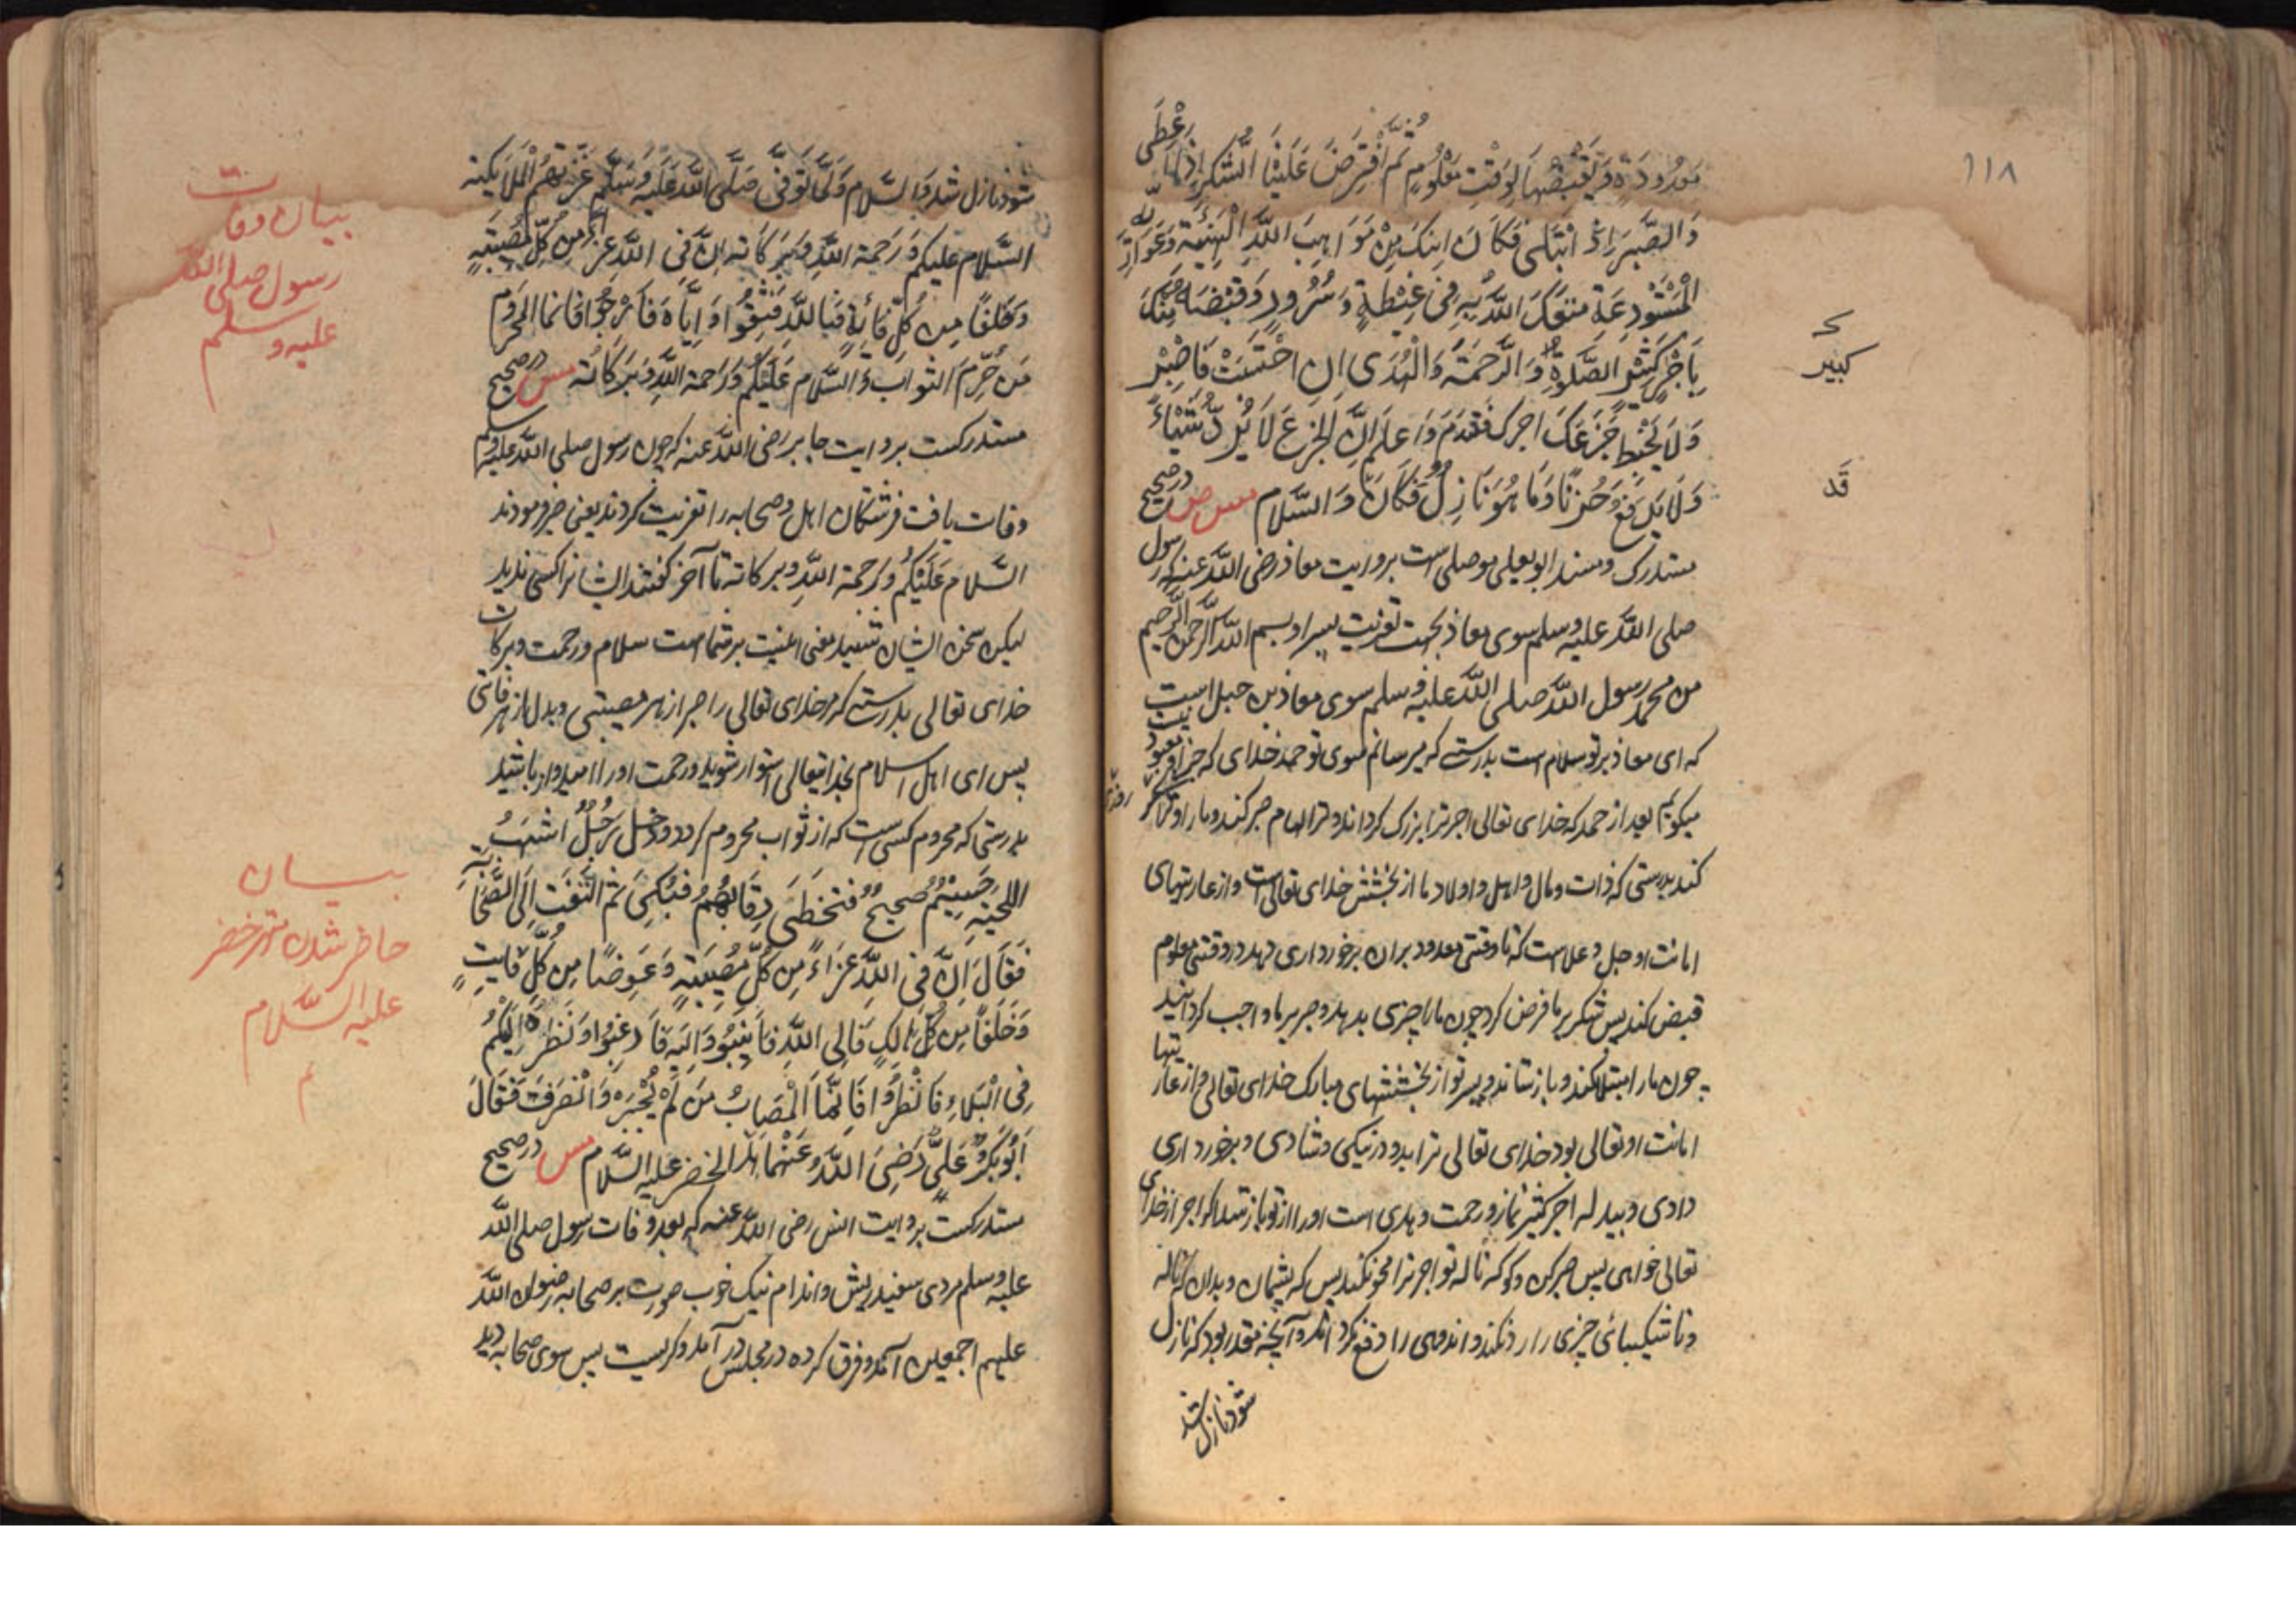 ١١٨
معدودة ويقبضها لوقت معلوم ثم افترض علينا الشكر اذا اعطى
والصبر اذا ابتلى فكان ابنك من مواهب الله الهنيئة وعواريه
المستودعة متعك الله به فى غبطة وسرور وقبضه منك
باجر كثير الصلوة والرحمة والهدى ان احتسبت فاصبر
كبير
ولا يحبط جزعك اجرك فتندم واعلم ان الجزع لا يرد شيئا
ولا يدفع حزنا وما هو نازل فكان والسلام مس ص در صحيح
قد
مستدرك ومسند ابو يعلى موصلى است بروايت معاذ رضى الله عنه كه رسول
صلى الله عليه وسلم سوى معاذ بجهت تعزيت پسر او بسم الله الرحمن الرحيم
من محمد رسول الله صلى الله عليه وسلم سوى معاذ بن جبل است
كه اى معاذ بر تو سلام است بدرستى كه ميرسانم سوى تو حمد خداى كه جز او معبود نيست
ميكويم بعد از حمد كه خداى تعالى اجر ترا بزرك كرداند و ترا الهام صبر كند و ما را و ترا شكر
كند بدرستى كه ذات و مال و اهل و اولاد ما از بخشش خداى تعالى است و از عاريتهاى
امانت او جل وعلاست كه تا وقتى معدود بران برخوردارى دهد و در وقتى معلوم
قبض كند پس شكر بر ما فرض كرد چون ما را چيزى بدهد و صبر بر ما واجب كردانيد
چون ما را مبتلا كند و باز ستاند و پسر تو از بخششهاى مبارك خداى تعالى و از عاريتها
امانت او تعالى بود خداى تعالى ترا بدو در نيكى و شادى و برخوردارى
دادى و ببدله اجر كثير نماز و رحمت و هدى است او را از تو باز ستد اكر اجر از خداى
تعالى خواهى پس صبر كن و كو كه ناله تو اجر ترا محو نكند پس كه پشيمان و بدان كه ناله
و ناشكيبائى چيزى را رد نكند و اندوهى را دفع نكرداند و آنچه مقدر بود كه نازل
شود نازل شد
شود نازل شد والسلام ولما توفى صلى الله عليه وسلم عزتهم الملايكته
السلام عليكم ورحمة الله وبركاته ان فى الله عزاء من كل مصيبة
وخلفا من كل فائتة فبالله فثقوا واياه فارجوا فانما المحروم
من حرم الثواب والسلام عليكم ورحمة الله وبركاته مس در صحيح
مستدركست بروايت جابر رضى الله عنه كه چون رسول صلى الله عليه وسلم
وفات يافت فرشتكان اهل و صحابه را تعزيت كردند يعنى صبر فرمودند
السلام عليكم ورحمة الله وبركاته تا آخر كفتند ايشانرا كسى نديد
ليكن سخن ايشان شنيد معنى اينست بر شماست سلام و رحمت و بركات
خداى تعالى بدرستى كه مر خداى تعالى را صبر از هر مصيبتى و بدل از هر فائتى
پس اى اهل اسلام بخدايتعالى استوار شويد و رحمت او را اميدوار باشيد
بدرستى كه محروم كسى است كه از ثواب محروم كردد ودخل رجل اشهب
اللحية جسيم صحيح فتخطى رقابهم فبكى ثم التفت الى الصحابة
فقال ان فى الله عزاء من كل مصيبة وعوضا من كل فايت
وخلفا من كل هالك فالى الله فانيبوا واليه فارغبوا ونظره اليكم
فى البلاء فانظروا فانما المصاب من لم يجبره وانصرف فقال
ابو بكر وعلى رضى الله عنهما هذا الخضر عليه السلام مس در صحيح
مستدركست بروايت انس رضى الله عنه كه بعد وفات رسول صلى الله
عليه وسلم مردى سفيد ريش و اندام نيك خوب صورت بر صحابه رضوان الله
عليهم اجمعين آمد و فرق كرده در مجلس در آمد و كريست پس سوى صحابه ديد
بيان وفات
رسول صلى الله
عليه وسلم
بيان
حاضر شدن مهتر خضر
عليه السلام